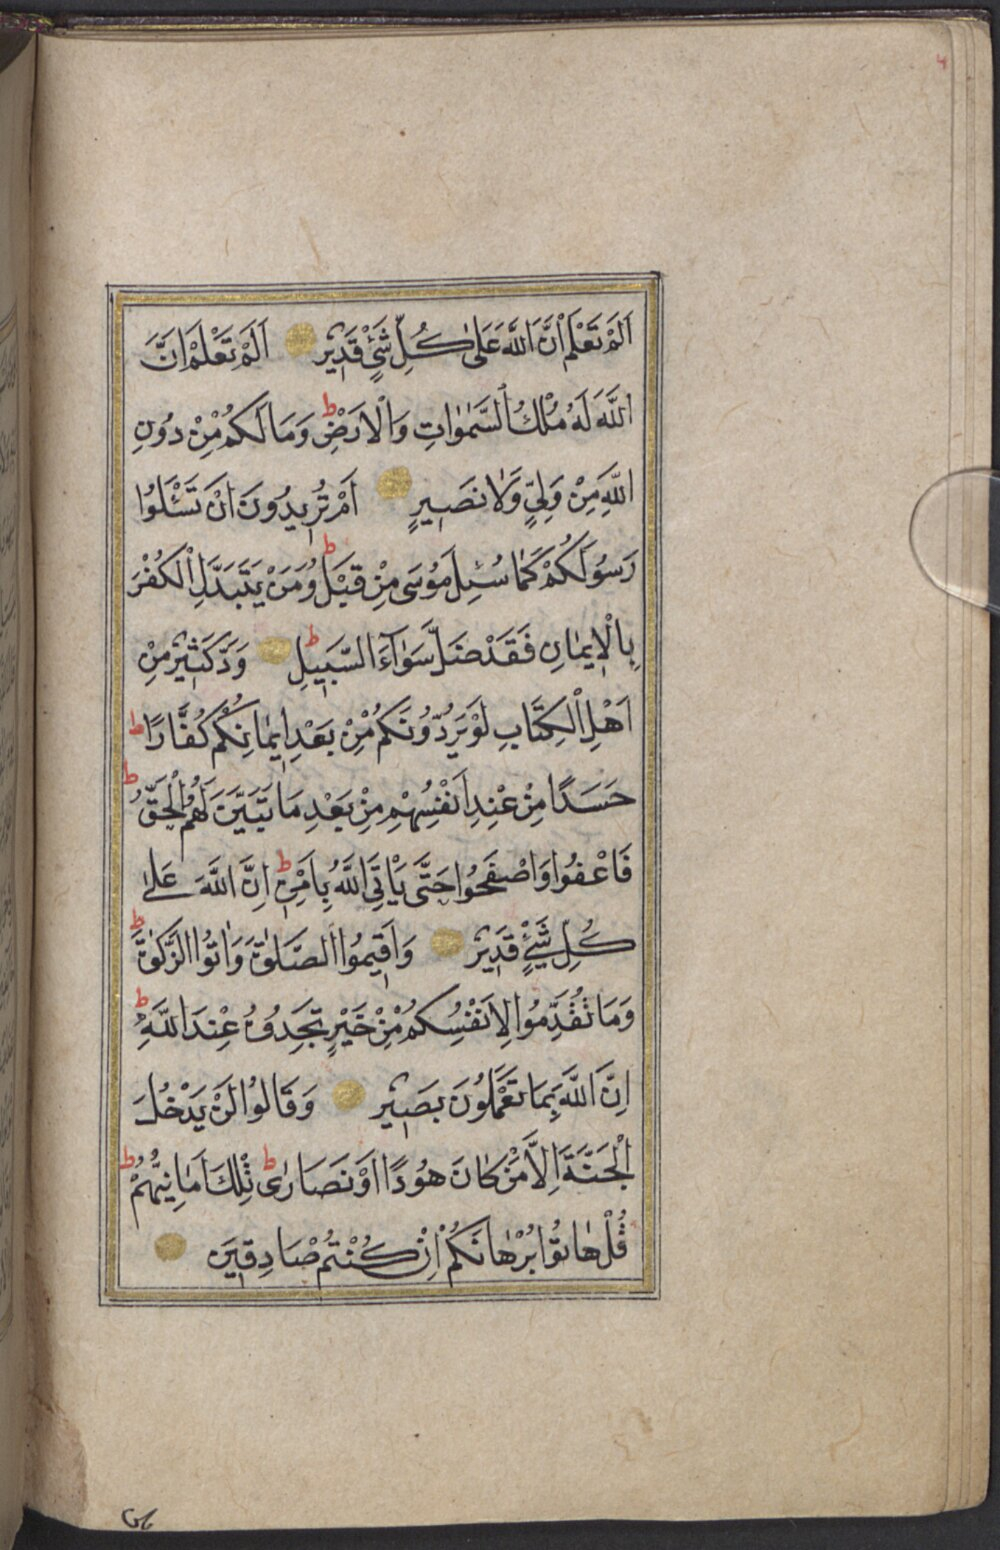 اَلَمْ تَعْلَمْ اَنَّ اللّٰهَ عَلٰى كُلِّ شَيْءٍ قَدِيرٌ اَلَمْ تَعْلَمْ اَنَّ
اللّٰهَ لَهُ مُلْكُ السَّمٰوَاتِ وَالْاَرْضِ ط وَمَا لَكُمْ مِنْ دُونِ
اللّٰهِ مِنْ وَلِيٍّ وَلَا نَصِيرٍ اَمْ تُرِيدُونَ اَنْ تَسْئَلُوا
رَسُولَكُمْ كَمَا سُئِلَ مُوسٰى مِنْ قَبْلُ ط وَمَنْ يَتَبَدَّلِ الْكُفْرَ
بِالْاِيمَانِ فَقَدْ ضَلَّ سَوَآءَ السَّبِيلِ ط وَدَّ كَثِيرٌ مِنْ
اَهْلِ الْكِتَابِ لَوْ يَرُدُّونَكُمْ مِنْ بَعْدِ اِيمَانِكُمْ كُفَّارًا ط
حَسَدًا مِنْ عِنْدِ اَنْفُسِهِمْ مِنْ بَعْدِ مَا تَبَيَّنَ لَهُمُ الْحَقُّ ط
فَاعْفُوا وَاصْفَحُوا حَتَّى يَاْتِيَ اللّٰهُ بِاَمْرِهِ ط اِنَّ اللّٰهَ عَلٰى
كُلِّ شَيْءٍ قَدِيرٌ وَاَقِيمُوا الصَّلٰوةَ وَاٰتُوا الزَّكٰوةَ ط
وَمَا تُقَدِّمُوا لِاَنْفُسِكُمْ مِنْ خَيْرٍ تَجِدُوهُ عِنْدَ اللّٰهِ ط
اِنَّ اللّٰهَ بِمَا تَعْمَلُونَ بَصِيرٌ وَقَالُوا لَنْ يَدْخُلَ
الْجَنَّةَ اِلَّا مَنْ كَانَ هُودًا اَوْ نَصَارٰى ط تِلْكَ اَمَانِيُّهُمْ ط
قُلْ هَاتُوا بُرْهَانَكُمْ اِنْ كُنْتُمْ صَادِقِينَ